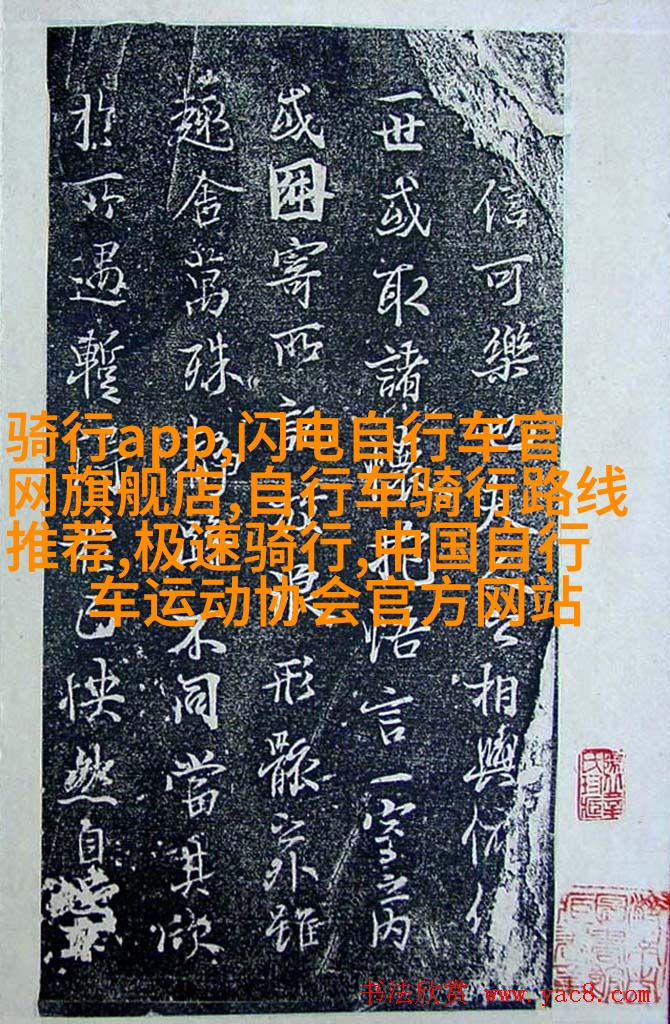 骑行app,闪电自行车官
网旗舰店,自行车骑行路线
推荐,极速骑行,中国自行
车运动协会官方网站
信可樂也夫人之相與俯仰
一世或取諸懷抱悟言一室之内
或因寄所託放浪形骸之外雖
趣舍萬殊静躁不同當其欣
於所遇暫得於己怏然自
书法欣赏 www.yac8.com